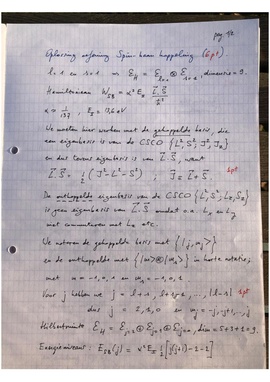 pag 1/2
Oplossing oefening Spin-baan koppeling (6pt)
l=1 en s=1 ⇒ ℰ_H = ℰ_{l=1} ⊗ ℰ_{s=1}, dimensie = 9.
Hamiltoniaan W_SB = α² E_I \vec{L}·\vec{S} / ħ²
α ≈ 1/137, E_I = 13,6 eV
We moeten hier werken met de gekoppelde basis, die
een eigenbasis is van de CSCO {L², S², J², J_z}
en dus tevens eigenbasis is van \vec{L}·\vec{S}, want
\vec{L}·\vec{S} = 1/2 (J²-L²-S²) ; \vec{J} = \vec{L}+\vec{S}. 1pt
De ontkoppelde eigenbasis van de CSCO {L², S², L_z, S_z}
is geen eigenbasis van \vec{L}·\vec{S} omdat o.a. L_x en L_y
niet commuteren met L_z etc.
We noteren de gekoppelde basis met {|j, m_j>}
en de ontkoppelde met {|m>⊗|m_s>} in korte notatie;
met m = -1,0,1 en m_s = -1,0,1.
Voor j hebben we j = l+s, l+s-1, ..., |l-s| 1pt
dus j = 2, 1, 0 en m_j = -j, -j+1, ..., j
Hilbertruimte ℰ_H = ℰ_{j=2} ⊕ ℰ_{j=1} ⊕ ℰ_{j=0}, dim = 5+3+1=9.
Energieniveaus: E_SB(j) = α² E_I 1/2 [j(j+1)-2-2]